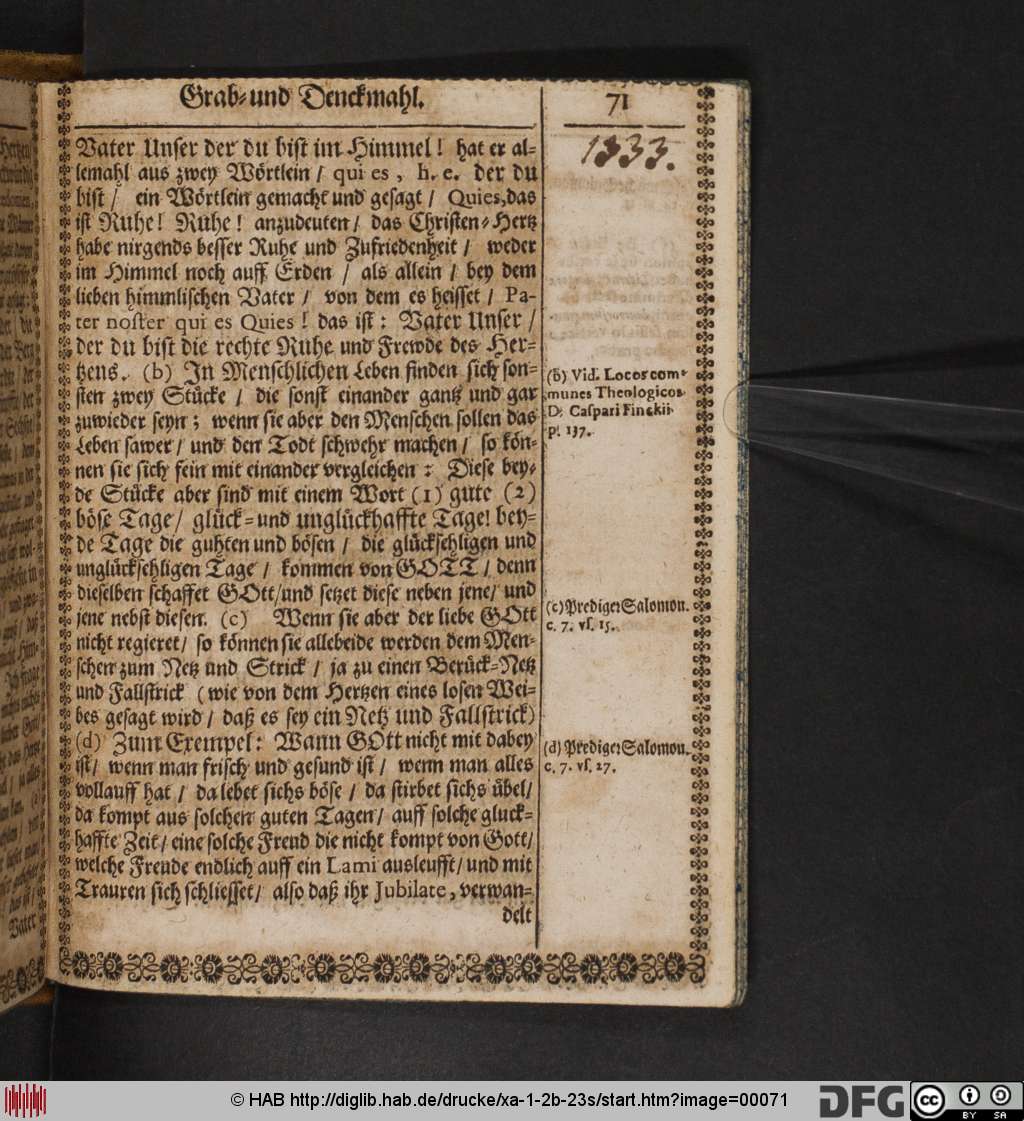 Grab-und Denckmahl.
71
1333.
Vater Unser der du bist im Himmel! hat er al-
lemahl aus zwey Wörtlein / qui es, h. e. der du
bist / ein Wörtlein gemacht und gesagt / Quies, das
ist Ruhe! Ruhe! anzudeuten / das Christen-Hertz
habe nirgends besser Ruhe und Zufriedenheit / weder
im Himmel noch auff Erden / als allein / bey dem
lieben himmlischen Vater / von dem es heisset / Pa-
ter noster qui es Quies! das ist: Vater Unser /
der du bist die rechte Ruhe und Frewde des Her-
tzens. (b) In Menschlichen Leben finden sich son-
sten zwey Stücke / die sonst einander gantz und gar
zuwieder seyn; wenn sie aber den Menschen sollen das
Leben sawer / und den Todt schwehr machen / so kön-
nen sie sich fein mit einander vergleichen: Diese bey-
de Stücke aber sind mit einem Wort (1) gute (2)
böse Tage / glück-und unglückhaffte Tage! bey-
de Tage die guhten und bösen / die glückseligen und
unglücksehligen Tage / kommen von GOTT / denn
dieselben schaffet GOtt / und setzet diese neben jene / und
jene nebst diesen. (c) Wenn sie aber der liebe GOtt
nicht regieret / so können sie allebeide werden dem Men-
schen zum Netz und Strick / ja zu einen Berück-Netz
und Fallstrick (wie von dem Hertzen eines losen Wei-
bes gesagt wird / daß es sey ein Netz und Fallstrick)
(d) Zum Exempel: Wann GOtt nicht mit dabey
ist / wenn man frisch und gesund ist / wenn man alles
vollauff hat / da lebet sichs böse / da stirbet sichs übel /
da kompt aus solchen guten Tagen / auff solche gluck-
haffte Zeit / eine solche Freud die nicht kompt von Gott /
welche Freude endlich auff ein Lami ausleufft / und mit
Trauren sich schliesset / also daß ihr Jubilate, verwan-
delt
(b) Vid. Locos com-
munes Theologicos
D. Caspari Finckii
p. 137.
(c) Prediger Salomon.
c. 7. vs. 15.
(d) Prediger Salomon.
c. 7. vs. 27.
Vater
© HAB http://diglib.hab.de/drucke/xa-1-2b-23s/start.htm?image=00071
DFG
cc
BY SA